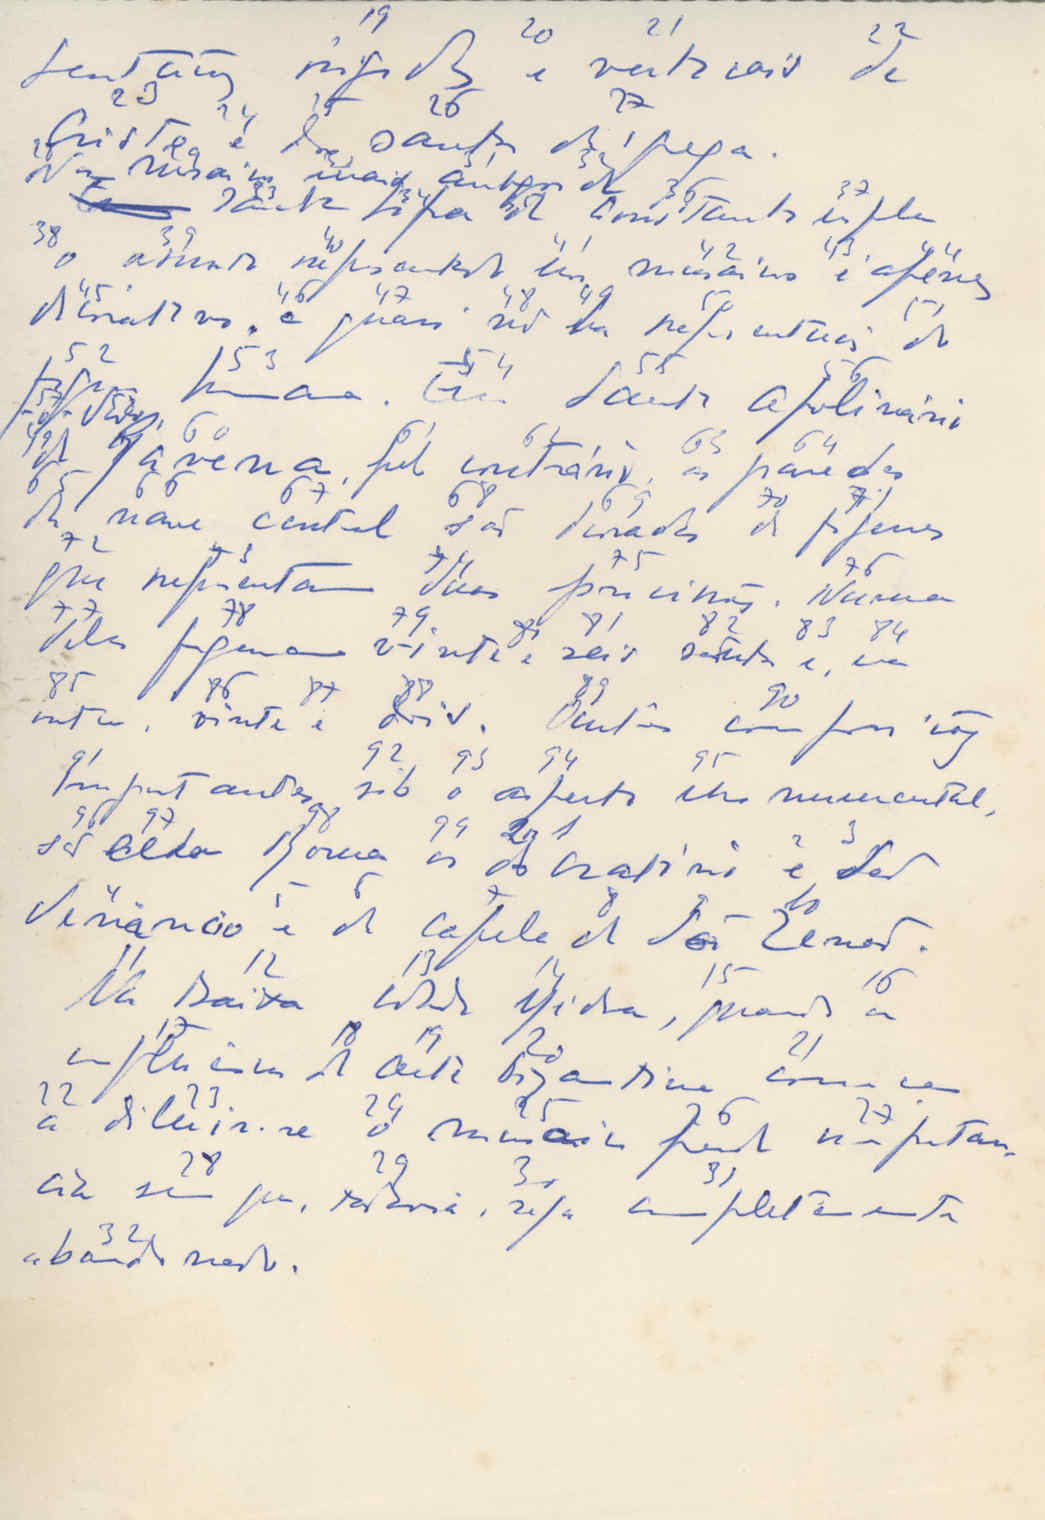 19 20 21 22
sentações rígidas e verticais de
23 24 25 26 27
Cristo e dos santos da Igreja.
Nos mosaicos mais antigos de
Santa Sofia de Constantinopla
37
38 39 40 41 42 43 44
o assunto representado nos mosaicos é apenas
45 46 47 48 49 50 51
decorativo, e quasi não há representação da
52 53 54 55 56
figura humana. Em Santo Apolinário
60 61 62 63 64
de Ravena, pelo contrário, as paredes
65 66 67 68 69 70 71
da nave central são decoradas de figuras
72 73 74 75 76
que representam duas procissões. Numa
77 78 79 80 81 82 83 84
delas figuram vinte e seis santos e, na
85 86 87 88 89 90
outra, vinte e dois. Outras composições
91 92 93 94 95
importantes, sob o aspecto monumental,
96 97 98 99 1 2 3
são em Roma as do oratório e São
4 5 6 7 8 9 10
Venâncio e da capela de São Zenão.
11 12 13 14 15 16
Na Baixa Idade Média, quando a
17 18 19 20 21
influência da arte bizantina começa
22 23 24 25 26 27
a diluir-se o mosaico perde importân-
28 29 30 31
cia sem que, todavia, seja completamente
32
abandonado.